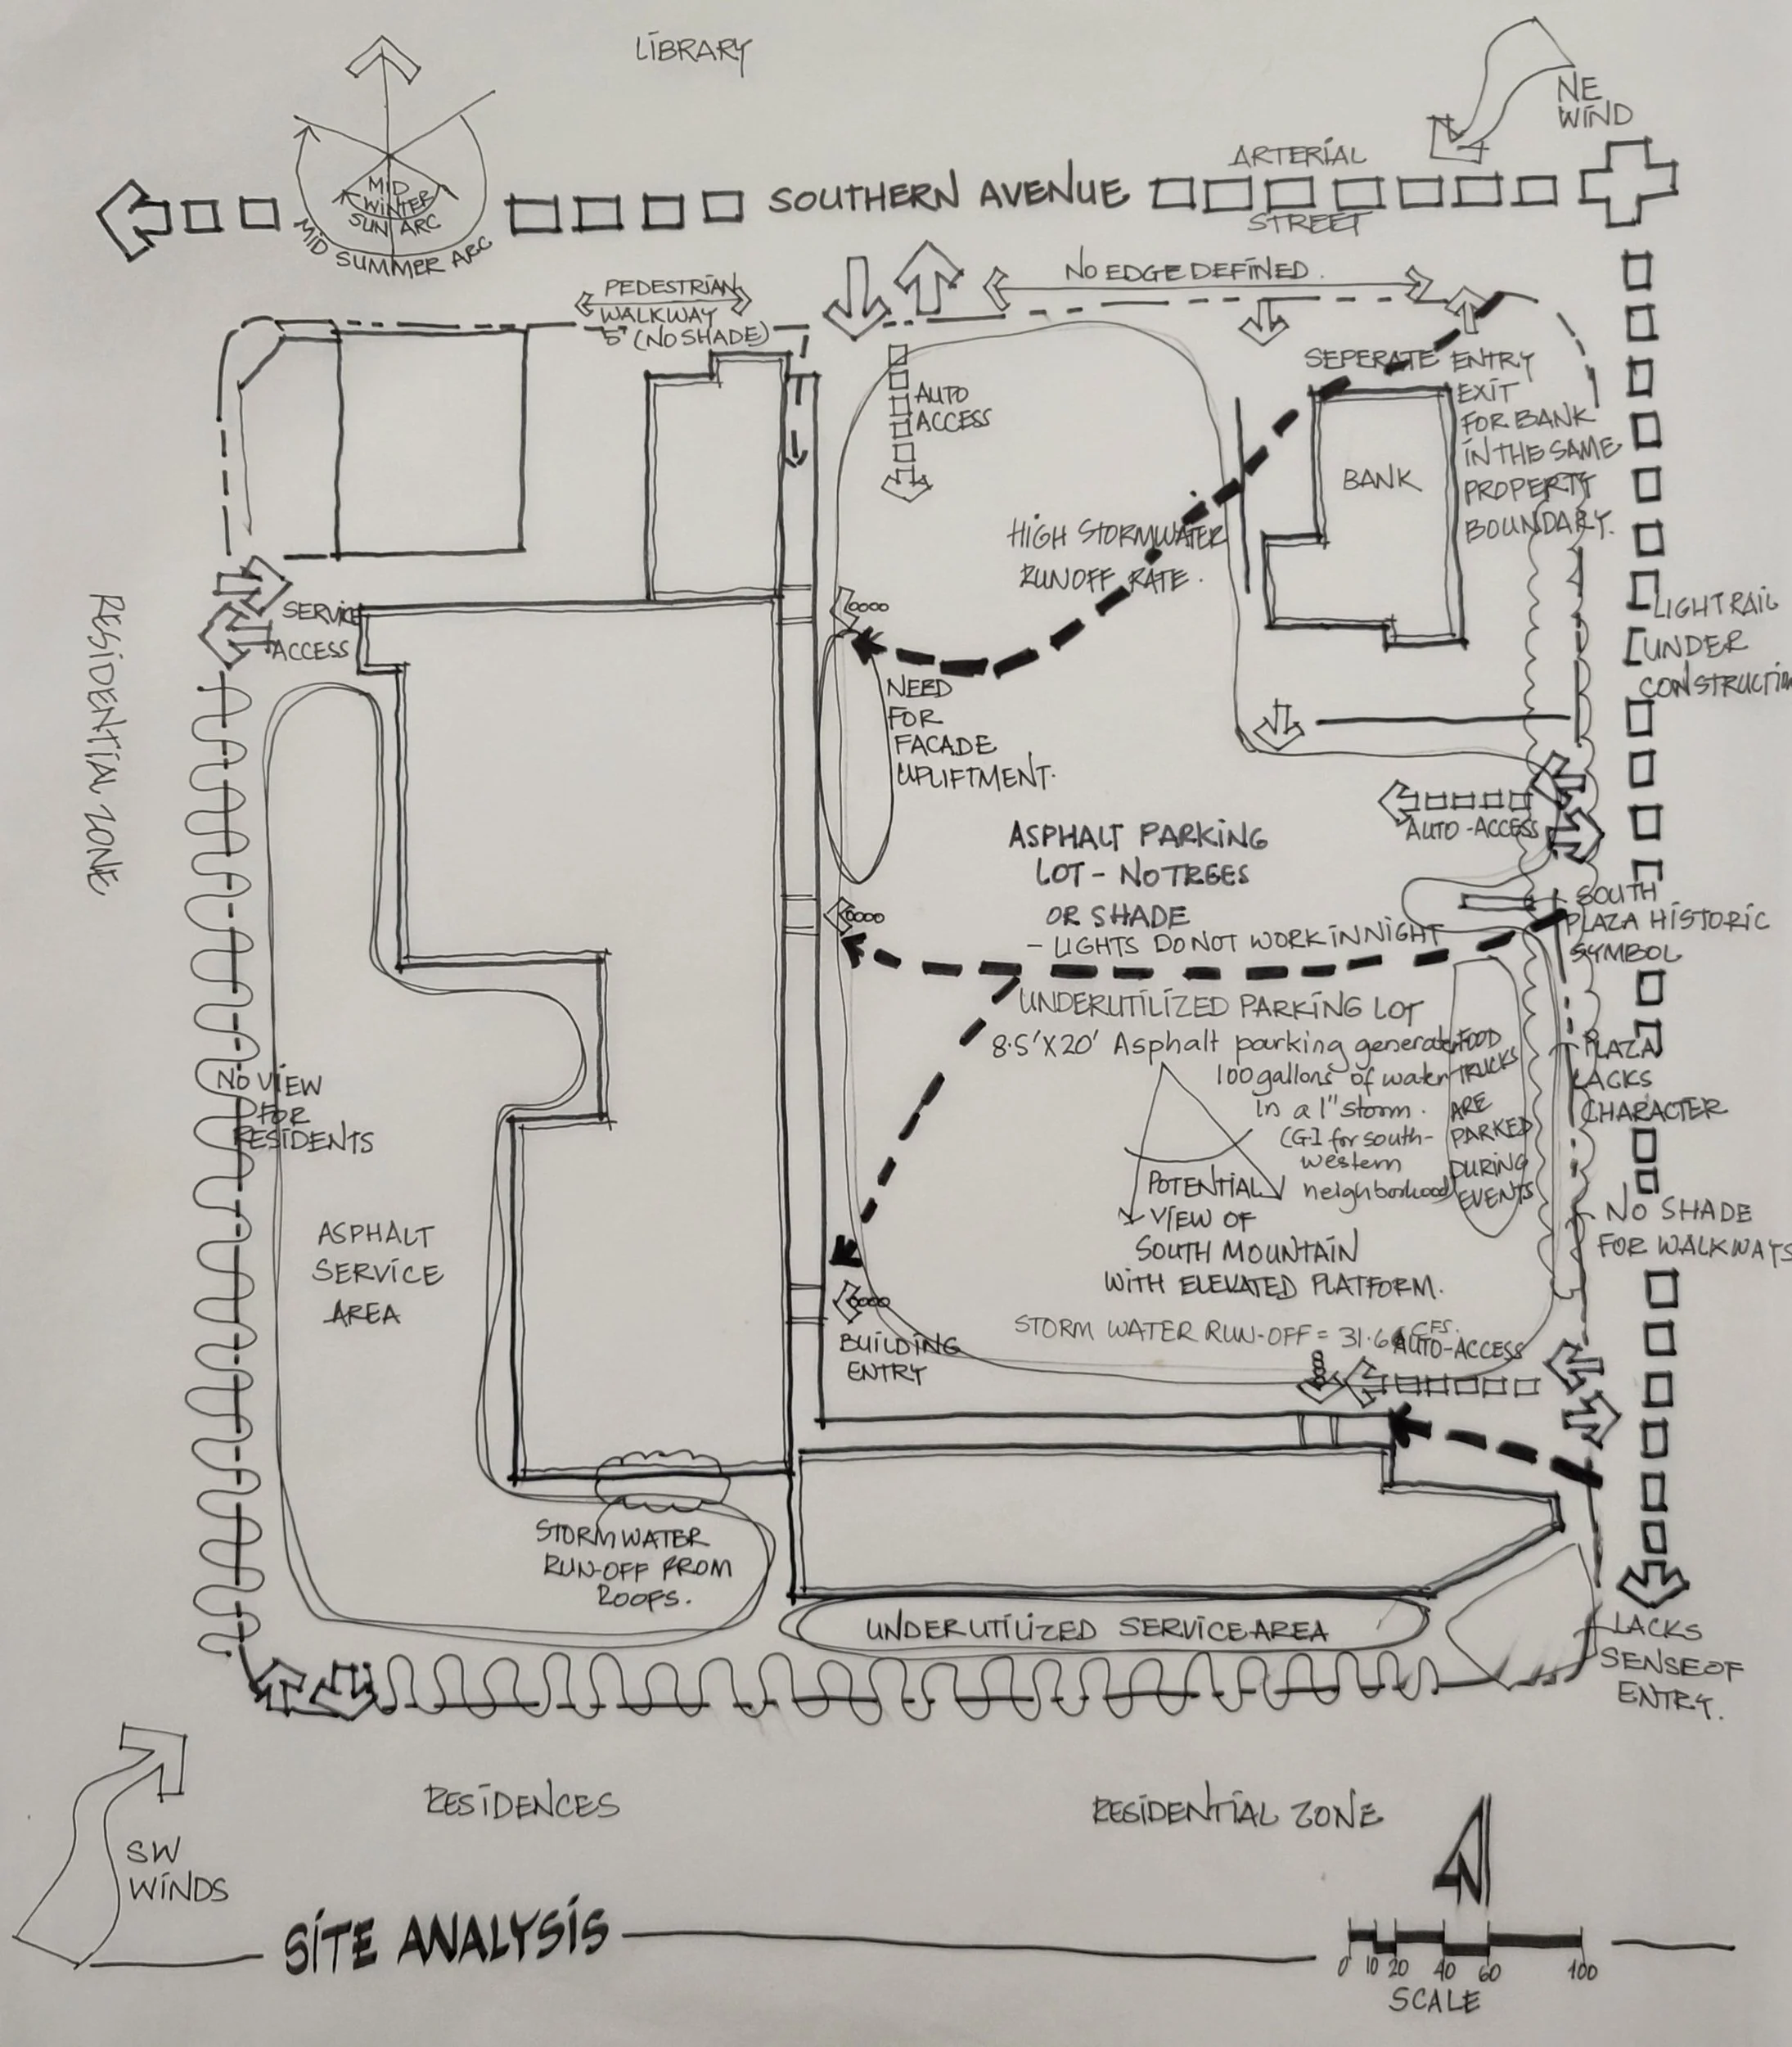 LIBRARY
NE
WIND
ARTERIAL
SOUTHERN AVENUE
STREET
MID
WINTER
SUN ARC
MID SUMMER ARC
PEDESTRIAN
WALKWAY
5' (NO SHADE)
NO EDGE DEFINED.
AUTO
ACCESS
SEPERATE ENTRY
EXIT
FOR BANK
IN THE SAME
PROPERTY
BOUNDARY.
BANK
HIGH STORMWATER
RUNOFF RATE.
LIGHT RAIL
UNDER
CONSTRUCTION
SERVICE
ACCESS
RESIDENTIAL ZONE
NEED
FOR
FACADE
UPLIFTMENT.
AUTO-ACCESS
ASPHALT PARKING
LOT - NO TREES
OR SHADE
- LIGHTS DO NOT WORK IN NIGHT
SOUTH
PLAZA HISTORIC
SYMBOL
UNDERUTILIZED PARKING LOT
8.5'X20' Asphalt parking generates
100 gallons of water
in a 1" storm.
(G.I for south-
western
neighborhood)
FOOD
TRUCKS
ARE
PARKED
DURING
EVENTS
PLAZA
LACKS
CHARACTER
NO VIEW
FOR
RESIDENTS
POTENTIAL
VIEW OF
SOUTH MOUNTAIN
WITH ELEVATED PLATFORM.
NO SHADE
FOR WALKWAYS
ASPHALT
SERVICE
AREA
STORM WATER RUN-OFF = 31.64 CFS.
AUTO-ACCESS
BUILDING
ENTRY
STORM WATER
RUN-OFF FROM
ROOFS.
UNDERUTILIZED SERVICE AREA
LACKS
SENSE OF
ENTRY.
RESIDENCES
RESIDENTIAL ZONE
SW
WINDS
N
SITE ANALYSIS
0 10 20 40 60 100
SCALE